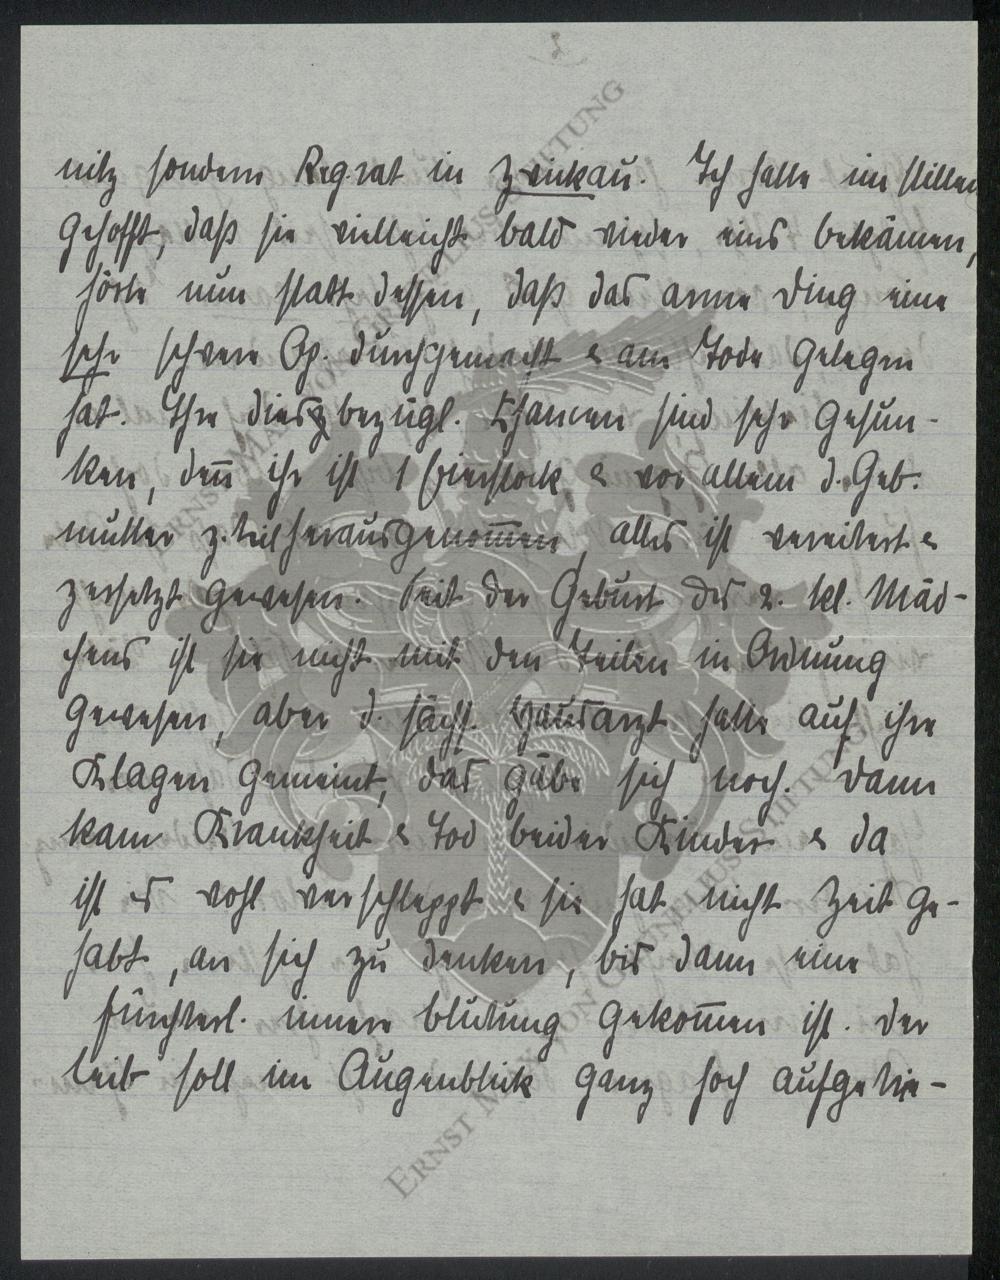 2
nitz sondern Reg.rat in Zwickau. Ich hatte im stillen
gehofft, daß sie vielleicht bald wieder eins bekämen,
hörte nun statt dessen, daß das arme Ding eine
sehr schwere Op. durchgemacht & am Tode gelegen
hat. Ihre diesbezügl. Chancen sind sehr gesun-
ken, deñ ihr ist 1 Eierstock & vor allem d. Geb.
mutter z. teil herausgenom̅en, alles ist vereitert &
zersetzt gewesen. Seit der Geburt des 2. kl. Mäd-
chens ist sie nicht mit den Teilen in Ordnung
gewesen, aber d. sächs. Hausarzt hatte auf ihre
Klagen gemeint, das gäbe sich noch. Dann
kam Krankheit & Tod beider Kinder & da
ist es wohl verschleppt & sie hat nicht Zeit ge-
habt, an sich zu denken, bis dann eine
fürchterl. innere Blutung gekom̅en ist. Der
Leib soll im Augenblick ganz hoch aufgetrie-
ERNST MAX VON GRUNELIUS-STIFTUNG
ERNST MAX VON GRUNELIUS-STIFTUNG